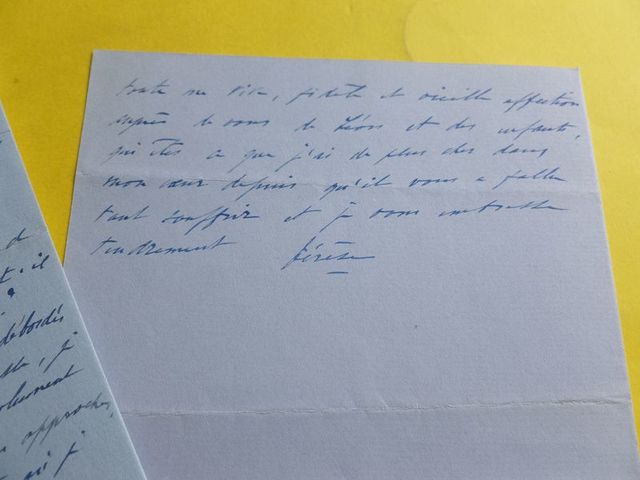 toute ma vive, fidèle et vieille affection
auprès de vous de Léon et des enfants,
qui êtes ce que j'ai de plus cher dans
mon cœur depuis qu'il vous a fallu
tant souffrir et je vous embrasse
tendrement
de
t. il
débordés
, je
approches,